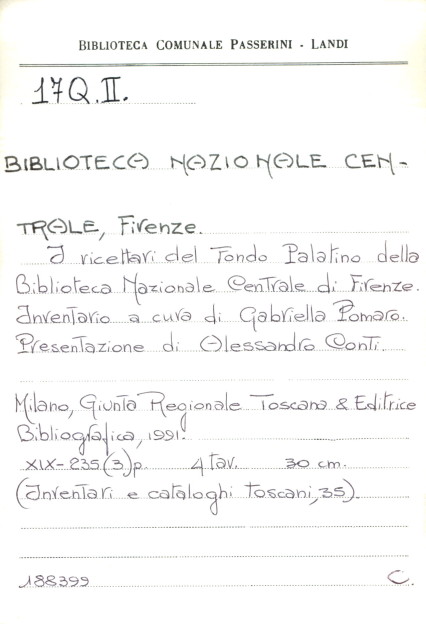 BIBLIOTECA COMUNALE PASSERINI - LANDI
17Q.II.
BIBLIOTECA NAZIONALE CEN-
TRALE, Firenze.
I ricettari del Fondo Palatino della
Biblioteca Nazionale Centrale di Firenze.
Inventario a cura di Gabriella Pomaro.
Presentazione di Alessandro Conti.
Milano, Giunta Regionale Toscana & Editrice
Bibliografica, 1991.
XIX-235(3)p. 4 tav. 30 cm.
(Inventari e cataloghi toscani, 35).
188399 C.